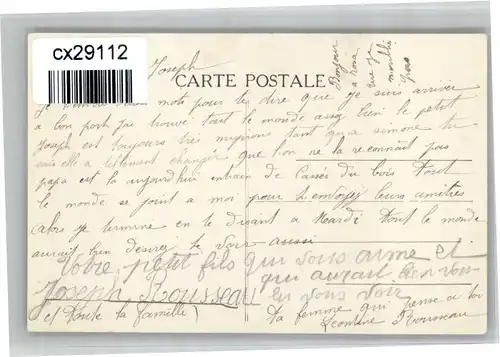 cx29112
Joseph
CARTE POSTALE
Bonjour
a rosa
que je
moublie
pas
mots pour te dire que je suis arrivée
a bon port j'ai trouvé tout le monde assez bien le petit
Joseph est toujours très mignons tant qu'a simone tu
sais elle a tellement changer que lon ne la reconnait pas
papa est la aujourd'hui entrain de Cassée du bois tout
le monde se joint a moi pour t'envoyer leurs amitiées
Alors je termine en te disant a Mardi tout le monde
aurait bien désirez te voir aussi
Votre petit fils qui vous aime et
qui aurait bien vou
Joseph Rousseau
lu vous voir
et toute la famille
Ta femme qui pense a toi
Leontine Rousseau